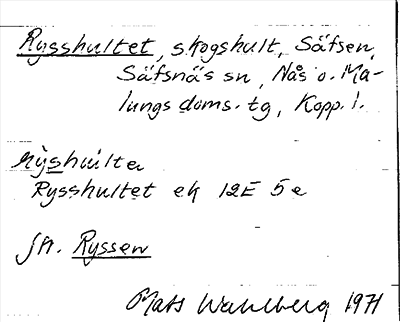 Rysshultet, skogshult, Säfsen,
Säfsnäs sn, Nås o. Ma-
lungs doms. tg, Kopp. l.
rỳshùlta
Rysshultet ek 12E 5e
jfr. Ryssen
Mats Wahlberg 1971